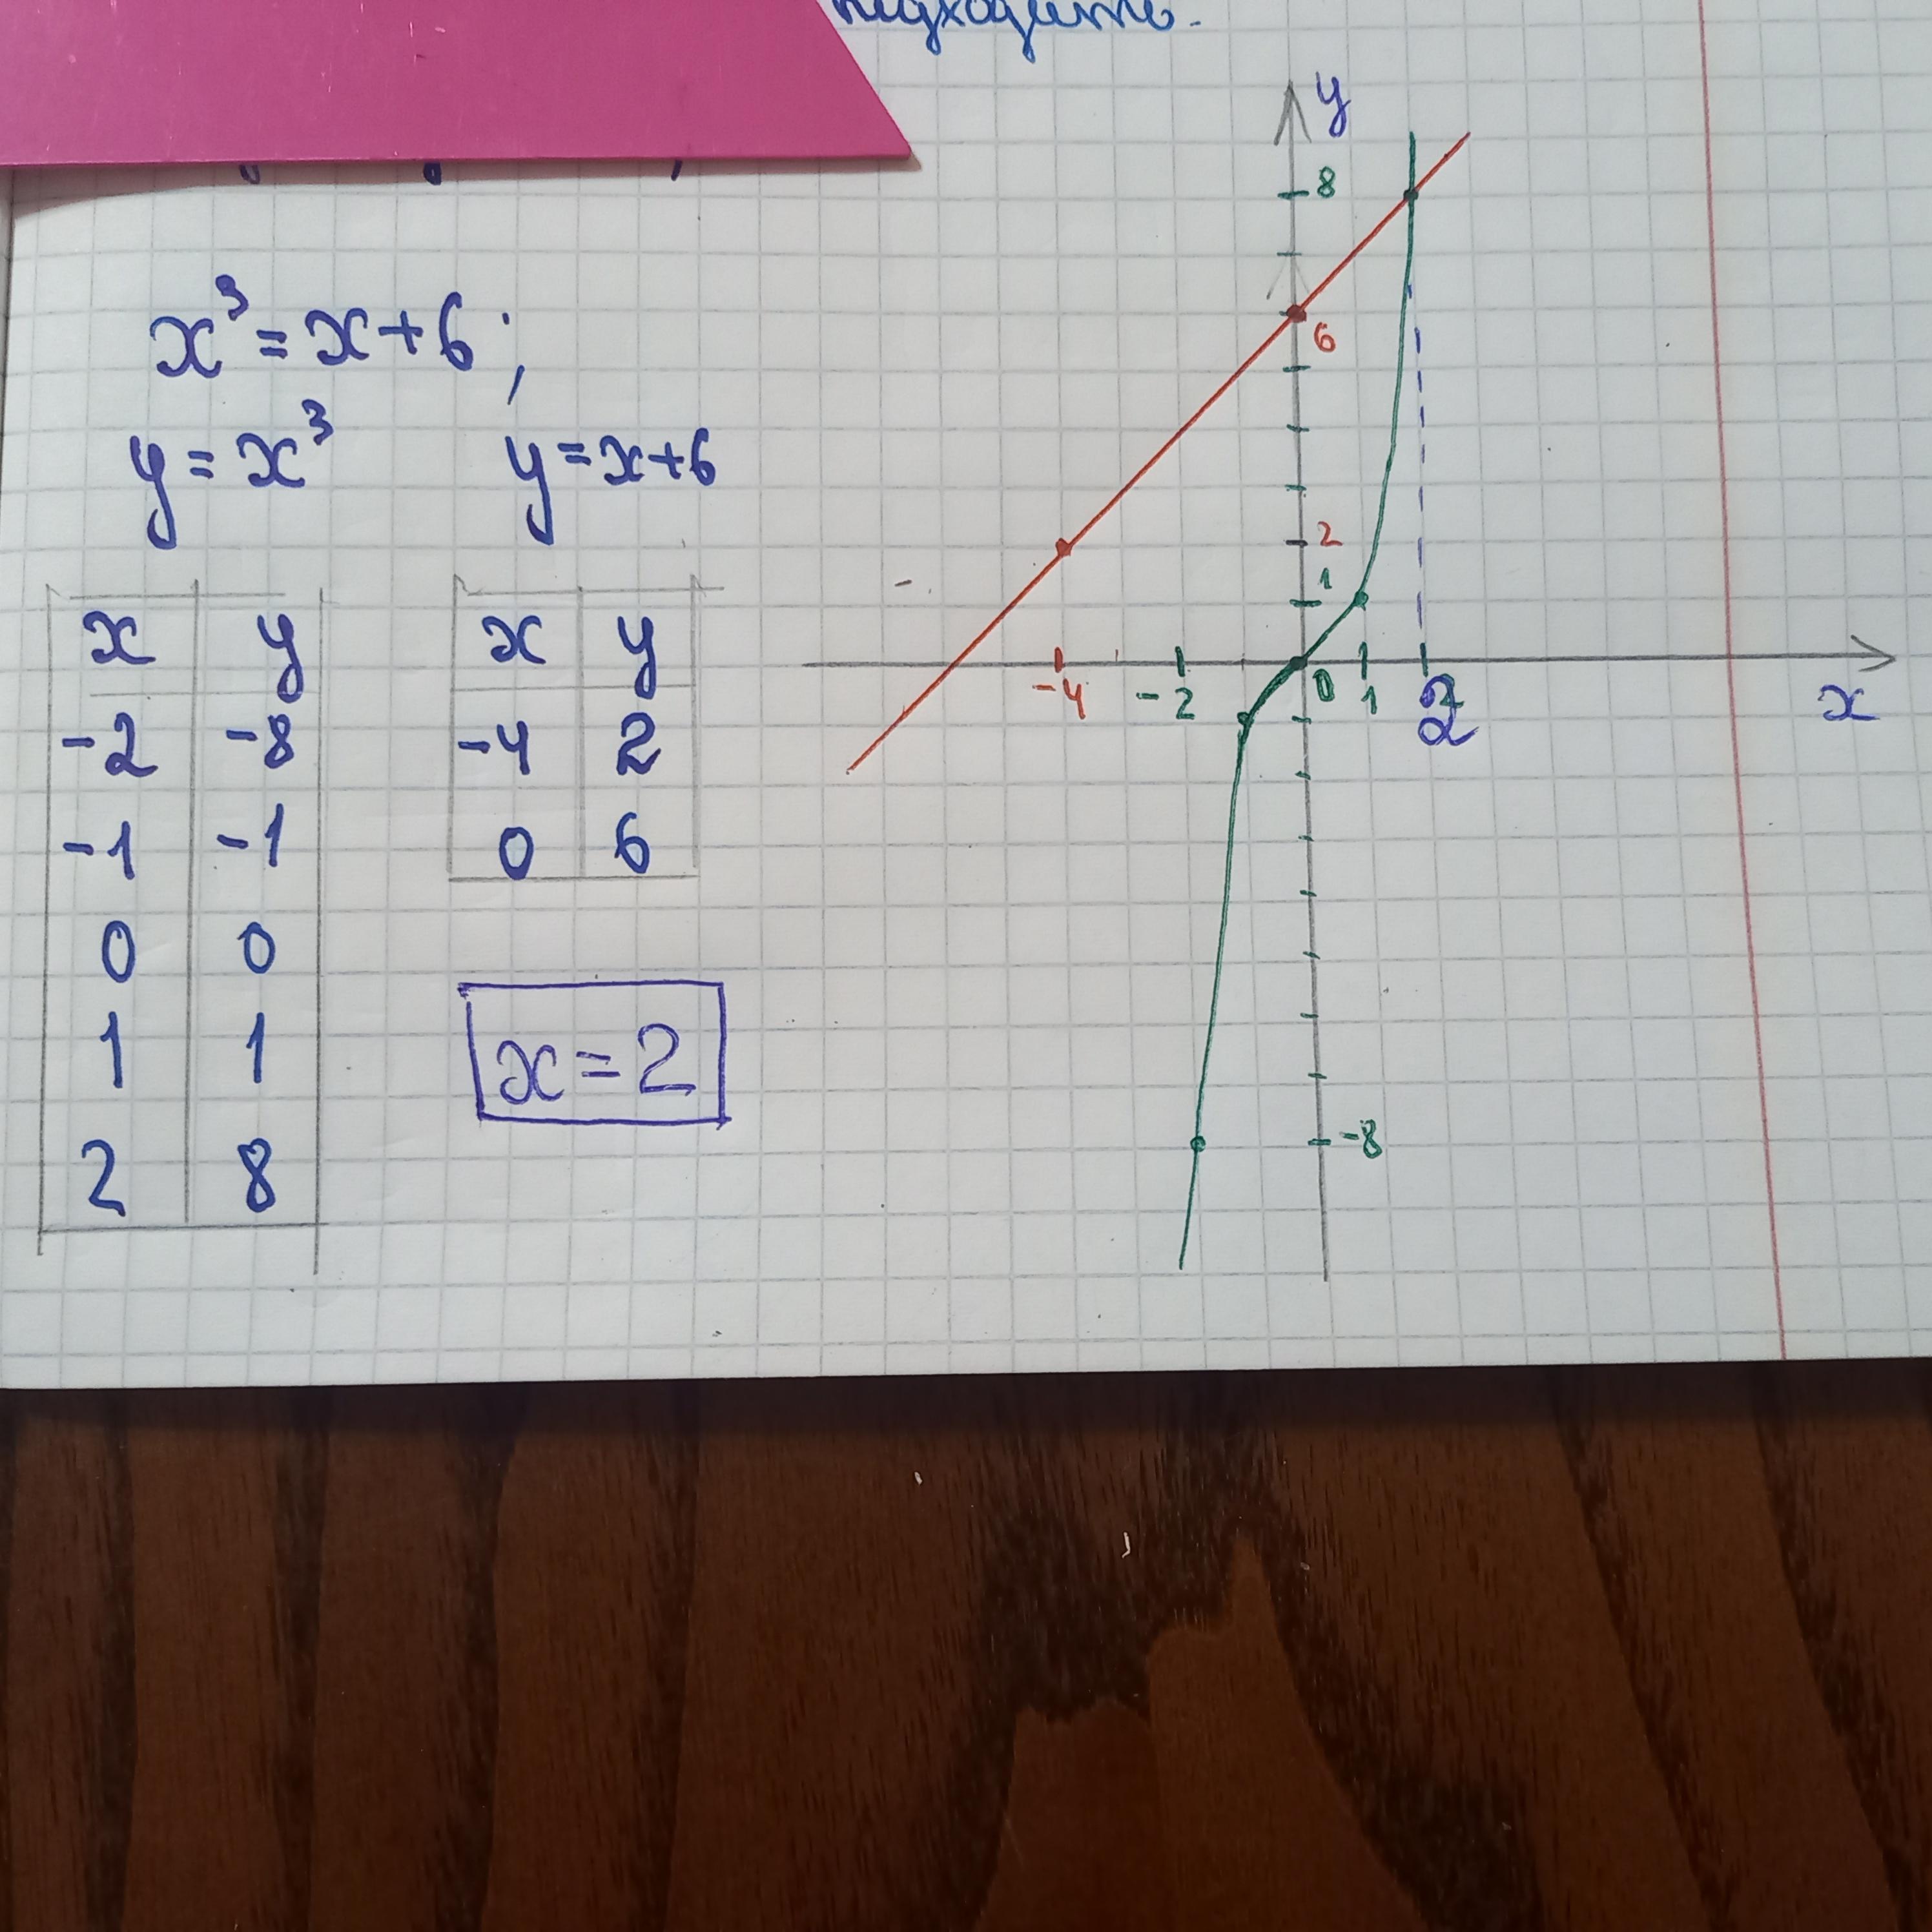 x³ = x + 6 ;
y = x³ y = x + 6
x y
-2 -8
-1 -1
0 0
1 1
2 8
x y
-4 2
0 6
x = 2
y
8
6
2
1
-4 -2 0 1 2 x
-8